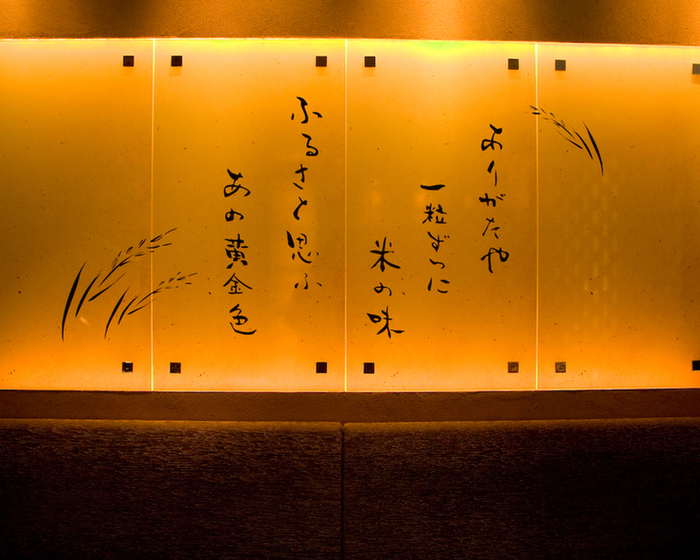 ありがたや
一粒ずつに
米の味
ふるさと思ふ
あの黄金色